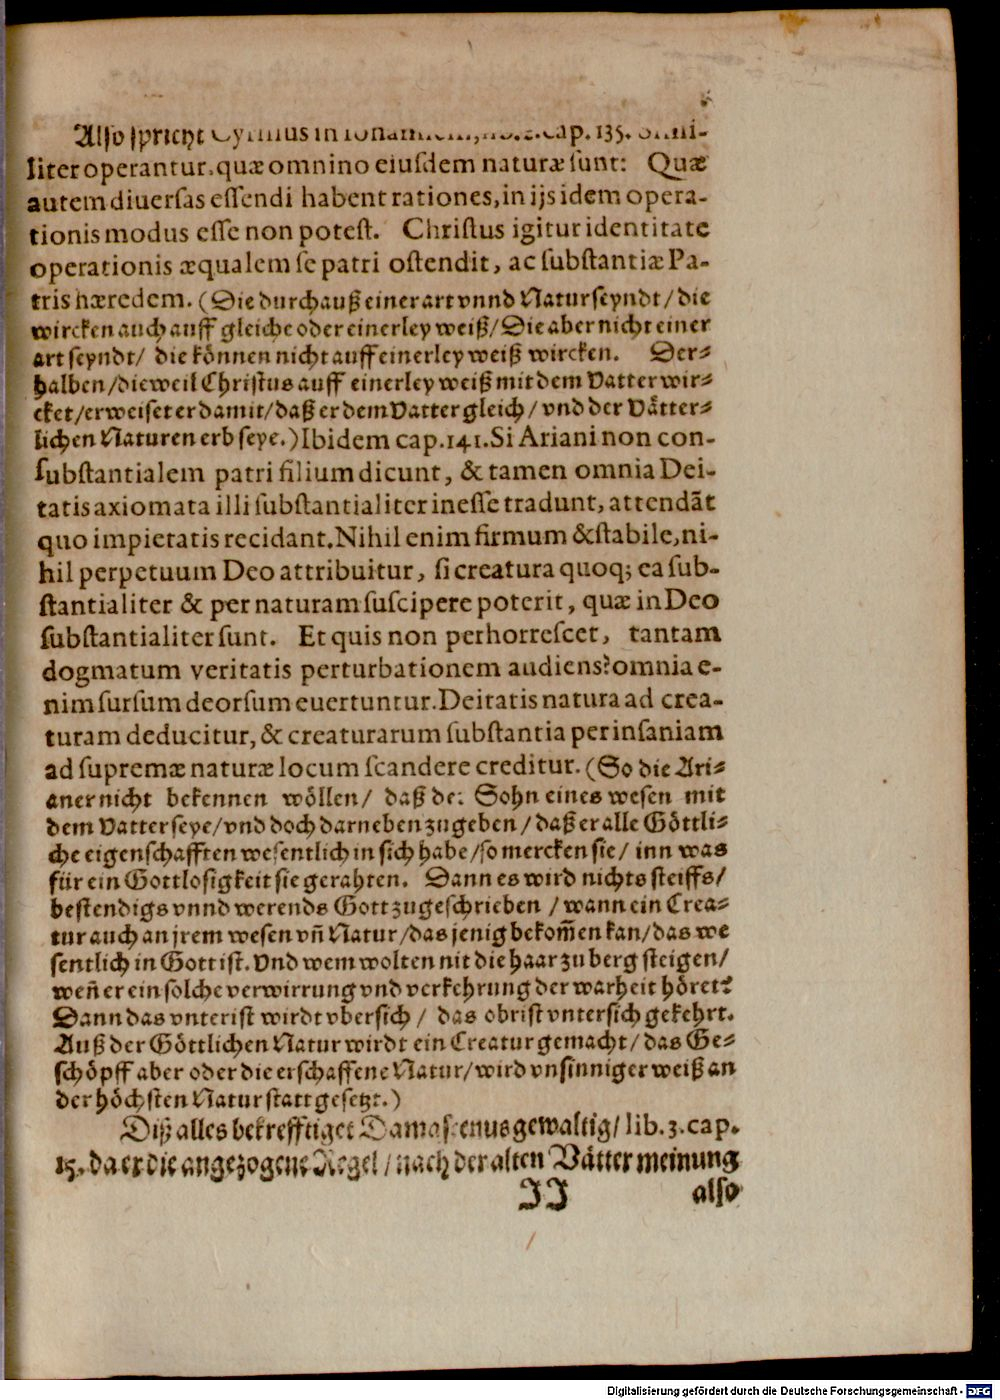 Also spricht Cyrillus in Iohannem, lib. 2. cap. 135. Simi-
liter operantur, quæ omnino eiusdem naturæ sunt: Quæ
autem diuersas essendi habent rationes, in ijs idem opera-
tionis modus esse non potest. Christus igitur identitate
operationis æqualem se patri ostendit, ac substantiæ Pa-
tris hæredem. (Die durchauß einer art vnnd Natur seyndt / die
wircken auch auff gleiche oder einerley weiß / Die aber nicht einer
art seyndt / die können nicht auff einerley weiß wircken. Der-
halben / dieweil Christus auff einerley weiß mit dem Vatter wir-
cket / erweiset er damit / daß er dem Vatter gleich / vnd der Vätter-
lichen Naturen erb seye.) Ibidem cap. 141. Si Ariani non con-
substantialem patri filium dicunt, & tamen omnia Dei-
tatis axiomata illi substantialiter inesse tradunt, attendãt
quo impietatis recidant. Nihil enim firmum & stabile, ni-
hil perpetuum Deo attribuitur, si creatura quoq; ea sub-
stantialiter & per naturam suscipere poterit, quæ in Deo
substantialiter sunt. Et quis non perhorrescet, tantam
dogmatum veritatis perturbationem audiens? omnia e-
nim sursum deorsum euertuntur. Deitatis natura ad crea-
turam deducitur, & creaturarum substantia per insaniam
ad supremæ naturæ locum scandere creditur. (So die Ari-
aner nicht bekennen wöllen / daß der Sohn eines wesen mit
dem Vatter seye / vnd doch darneben zugeben / daß er alle Göttli-
che eigenschafften wesentlich in sich habe / so mercken sie / inn was
für ein Gottlosigkeit sie gerahten. Dann es wird nichts steiffs /
bestendigs vnnd werends Gott zugeschrieben / wann ein Crea-
tur auch an jrem wesen vñ Natur / das jenig bekom̃en kan / das we
sentlich in Gott ist. Vnd wem wolten nit die haar zu berg steigen /
weñ er ein solche verwirrung vnd verkehrung der warheit höret?
Dann das vnterist wirdt vbersich / das obrist vntersich gekehrt.
Auß der Göttlichen Natur wirdt ein Creatur gemacht / das Ge-
schöpff aber oder die erschaffene Natur / wird vnsinniger weiß an
der höchsten Natur statt gesetzt.)
Diß alles bekrefftiget Damascenus gewaltig / lib. 3. cap.
15. da er die angezogene Regel / nach der alten Vätter meinung
JJ also
Digitalisierung gefördert durch die Deutsche Forschungsgemeinschaft - DFG